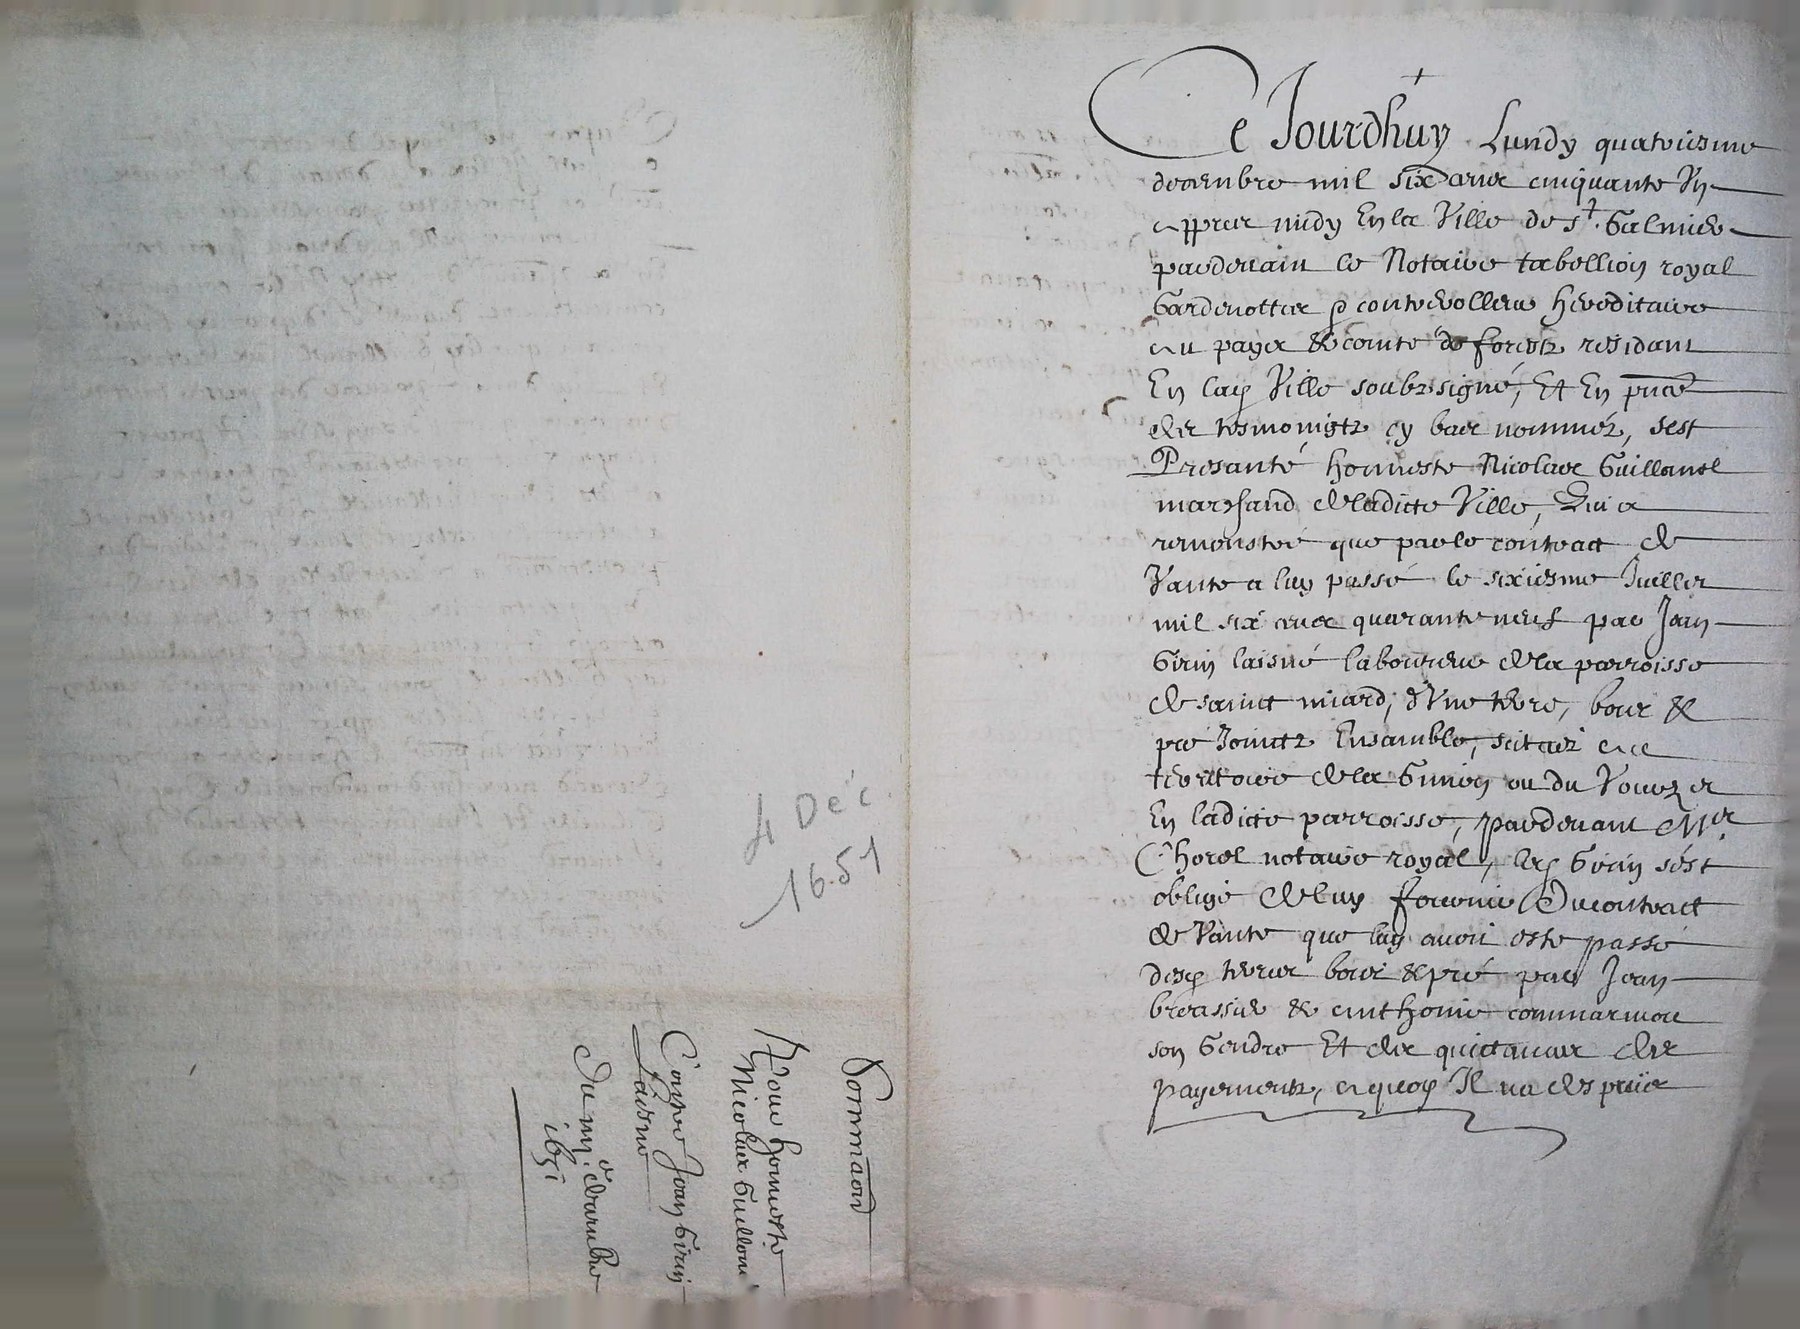 Ce Jourdhuy Lundy quatriesme
decembre mil six cens cinquante Un
appres midy En la Ville de St. Galmier
pardevant le Notaire tabellion royal
Gardenottes & controlleur hereditaire
au pays & comte de forestz residant
En lad Ville soubzsigné, Et En pnce
des tesmoingtz cy bas nommez, sest
Presanté honneste Nicolas Guillomel
marchand de ladicte Ville, Qui a
remonstré que par le contract de
Vante a luy passé le sixiesme Juillet
mil six cens quarante neuf par Jean
Girin laisné laboureur de la parroisse
de sainct miard, d'Une terre, bois &
pré Joinctz Ensamble, scituez au
territoire de la ou du
En ladicte parroisse, pardevant Me
Chorel notaire royal, led Girin sest
obligé de luy fournir du contract
de Vante que luy avoit esté passé
desd terres bois & pré par Jean
& anthoine
son Gendre Et des quittances des
payementz, a quoy Il na des puis
4 Déc.
1651
Sommaon
Pour honneste
Nicolas Guillomé
Contre Jean Girin
Laisné
Du iiij.e decembre
1651